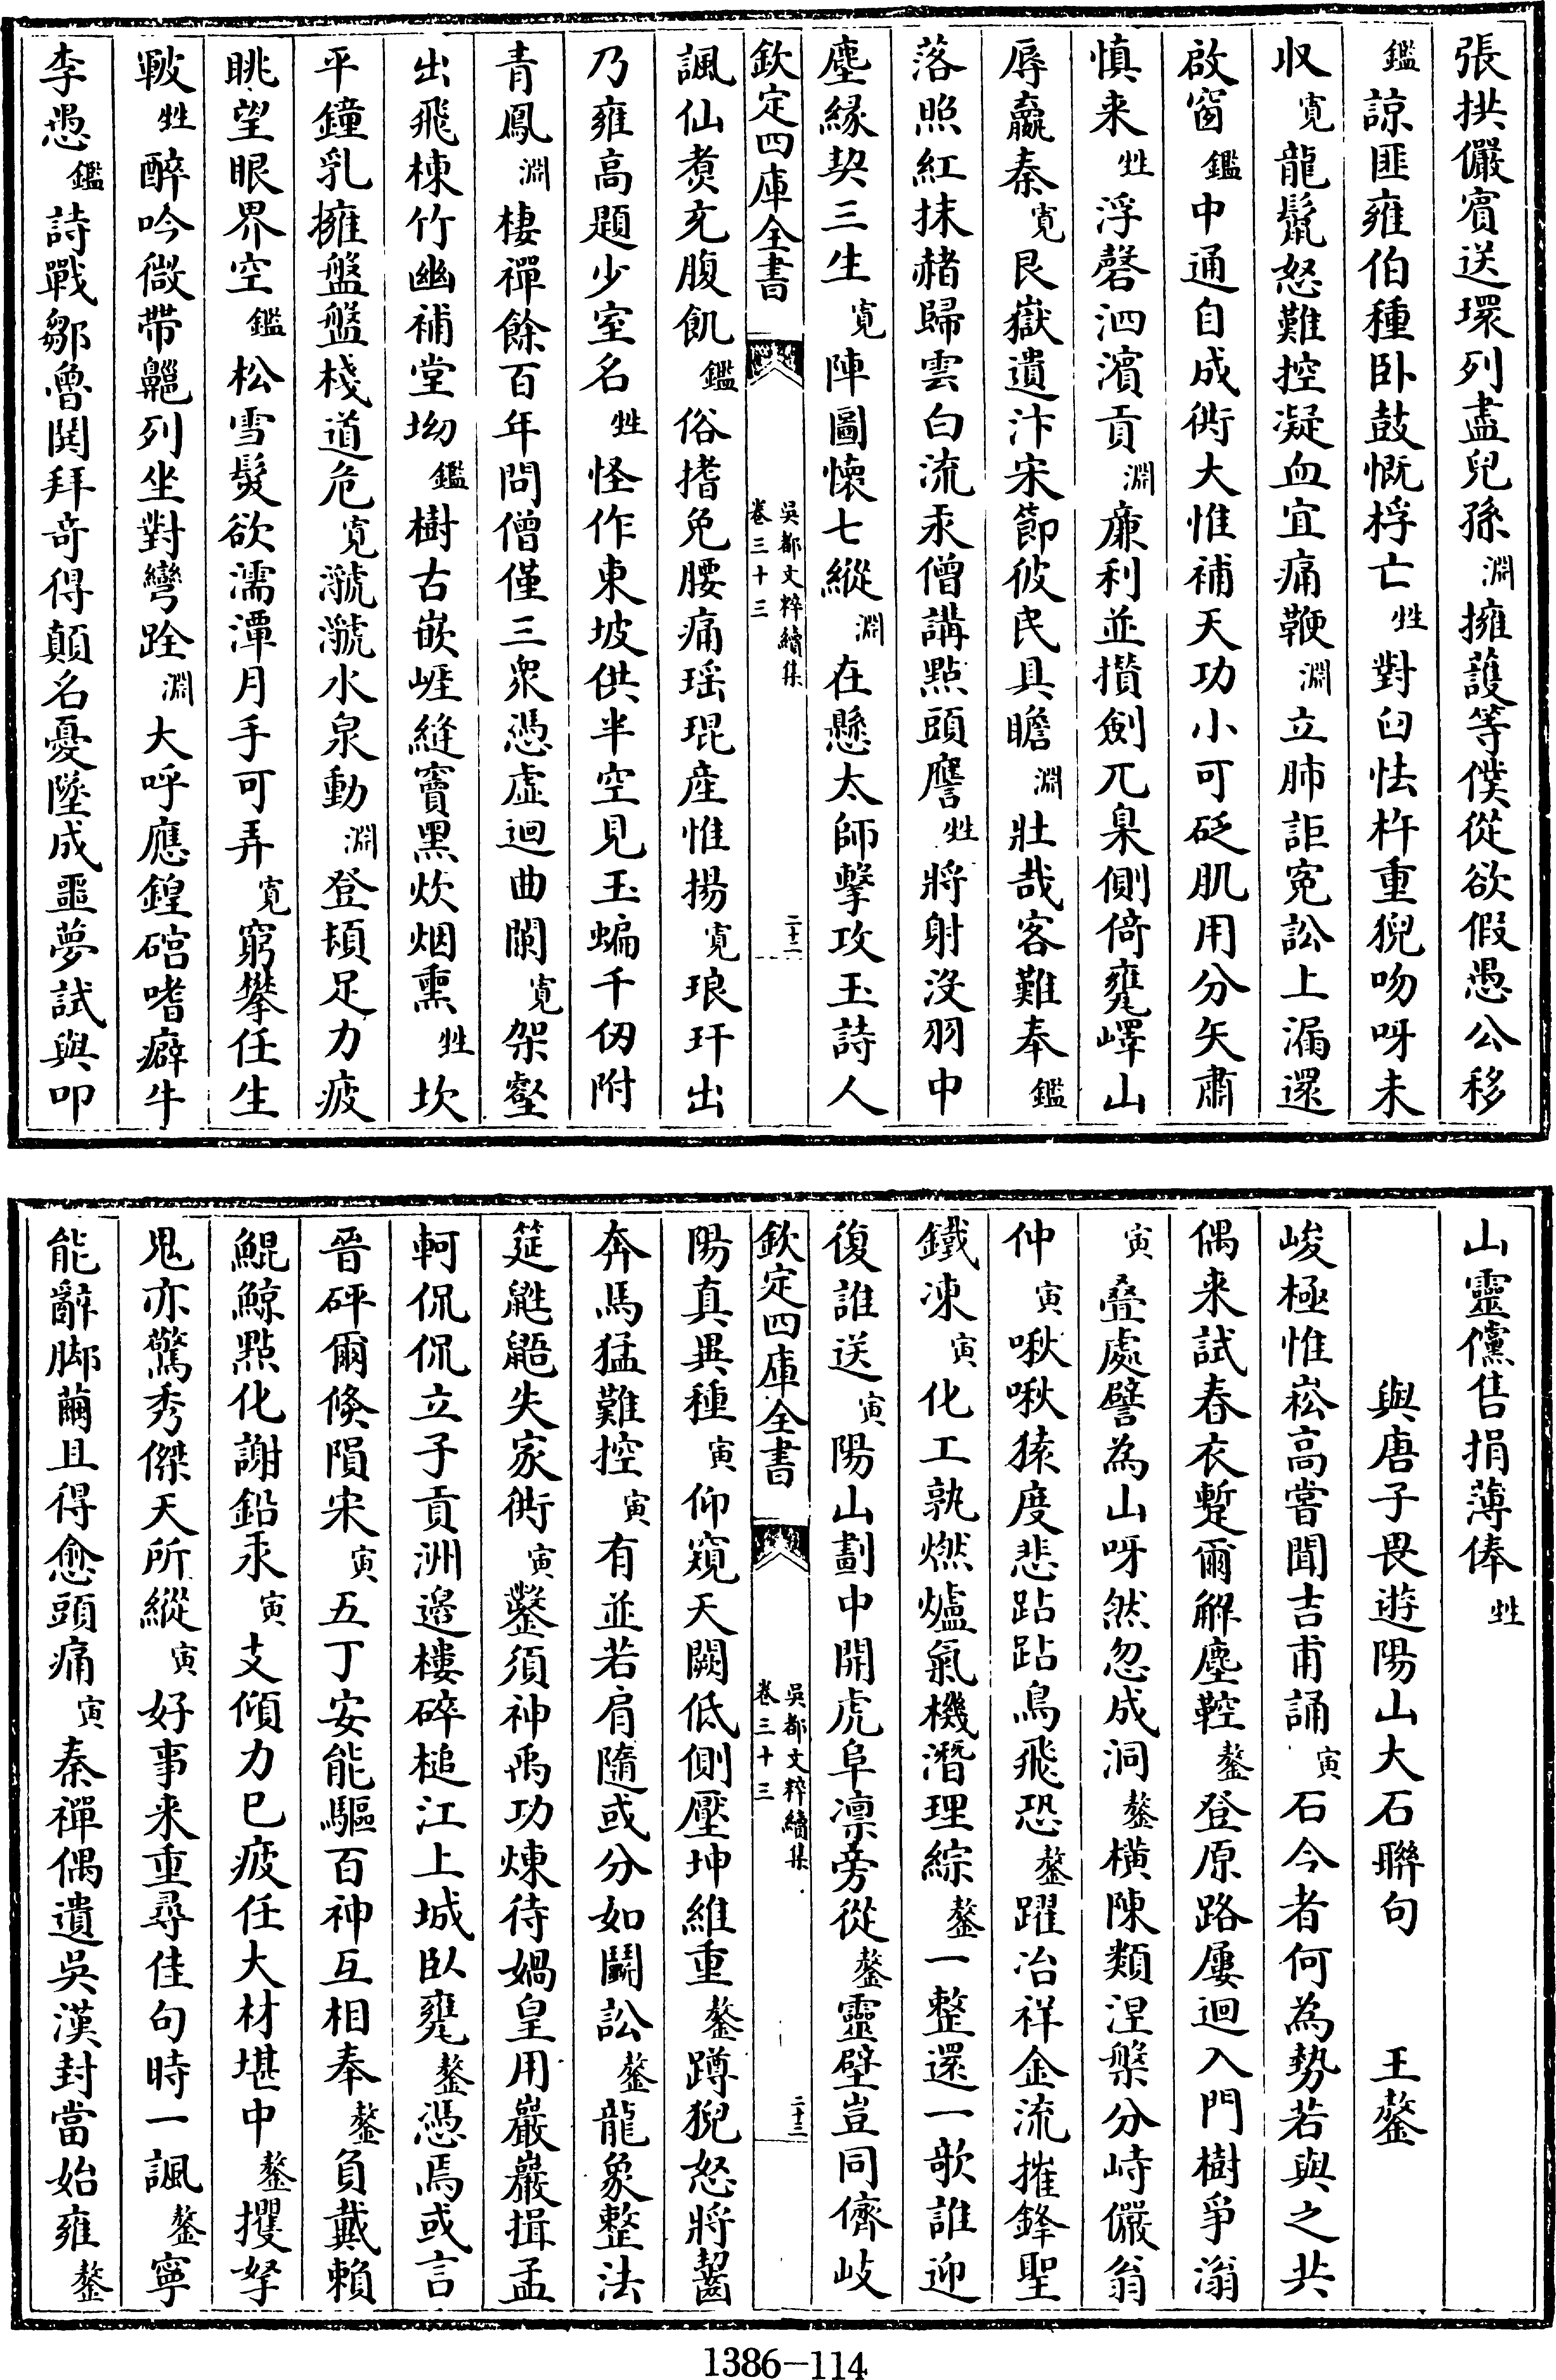 張拱儼賓送環列盡兒孫淵擁護等僕從欲假愚公移
鑑諒匪雍伯種卧鼓慨桴亡甡對臼怯杵重猊吻呀未
収寛龍鬛怒難控凝血宜痛鞭淵立肺詎寃訟上漏還
啟窗鑑中通自成衖大惟補天功小可砭肌用分矢肅
慎来甡浮磬泗濱貢淵亷利並攢劍兀臬側倚甕嶧山
辱嬴秦寛艮嶽遺汴宋節彼民具瞻淵壯哉客難奉鑑
落照紅抹赭歸雲白流汞僧講點頭譍甡將射沒羽中
塵緣契三生寛陣圖懷七縱淵在懸太師擊攻玉詩人
欽定四庫全書
吳都文粹續集
卷三十三
二十二
諷仙煑充腹飢鑑俗搘免腰痛瑶琨産惟揚寛琅玕出
乃雍高題少室名甡怪作東坡供半空見玉蝙千仭附
青鳳淵棲禪餘百年問僧僅三衆憑虛迴曲闌寛架壑
出飛棟竹幽補堂坳鑑樹古嵌崕縫竇黑炊烟熏甡坎
平鐘乳擁盤盤棧道危寛㶁㶁水泉動淵登頓足力疲
眺望眼界空鑑松雪髮欲濡潭月手可弄寛窮攀任生
皸甡醉吟微帶齆列坐對彎跧淵大呼應鍠硿嗜癖牛
李愚鑑詩戰鄒魯鬨拜竒得顛名憂墜成噩夢試與叩
山靈儻售捐薄俸甡
與唐子畏遊陽山大石聯句　王鏊
峻極惟崧高嘗聞吉甫誦寅石今者何為勢若與之共
偶来試春衣蹔爾解塵鞚鏊登原路屢迴入門樹爭滃
寅叠處譬為山呀然忽成洞鏊横陳類涅槃分峙儼翁
仲寅啾啾猿度悲跕跕鳥飛恐鏊躍冶祥金流摧鋒聖
鐵凍寅化工孰燃爐氣機潛理綜鏊一整還一欹誰迎
復誰送寅陽山劃中開虎阜凛旁從鏊靈壁豈同儕岐
欽定四庫全書
吳都文粹續集
卷三十三
二十三
陽真異種寅仰窺天闕低側壓坤維重鏊蹲猊怒將齧
奔馬猛難控寅有並若肩隨或分如鬭訟鏊龍象整法
筵鼪鼯失家衖寅鑿須神禹功煉待媧皇用巖巖揖孟
軻侃侃立子貢洲邉樓碎槌江上城臥甕鏊憑焉或言
晉砰爾倐隕宋寅五丁安能驅百神互相奉鏊負戴賴
鯤鯨點化謝鉛汞寅支傾力已疲任大材堪中鏊攫拏
鬼亦驚秀傑天所縱寅好事来重尋佳句時一諷鏊寧
能辭脚繭且得愈頭痛寅秦禪偶遺吳漢封當始雍鏊
1386-114